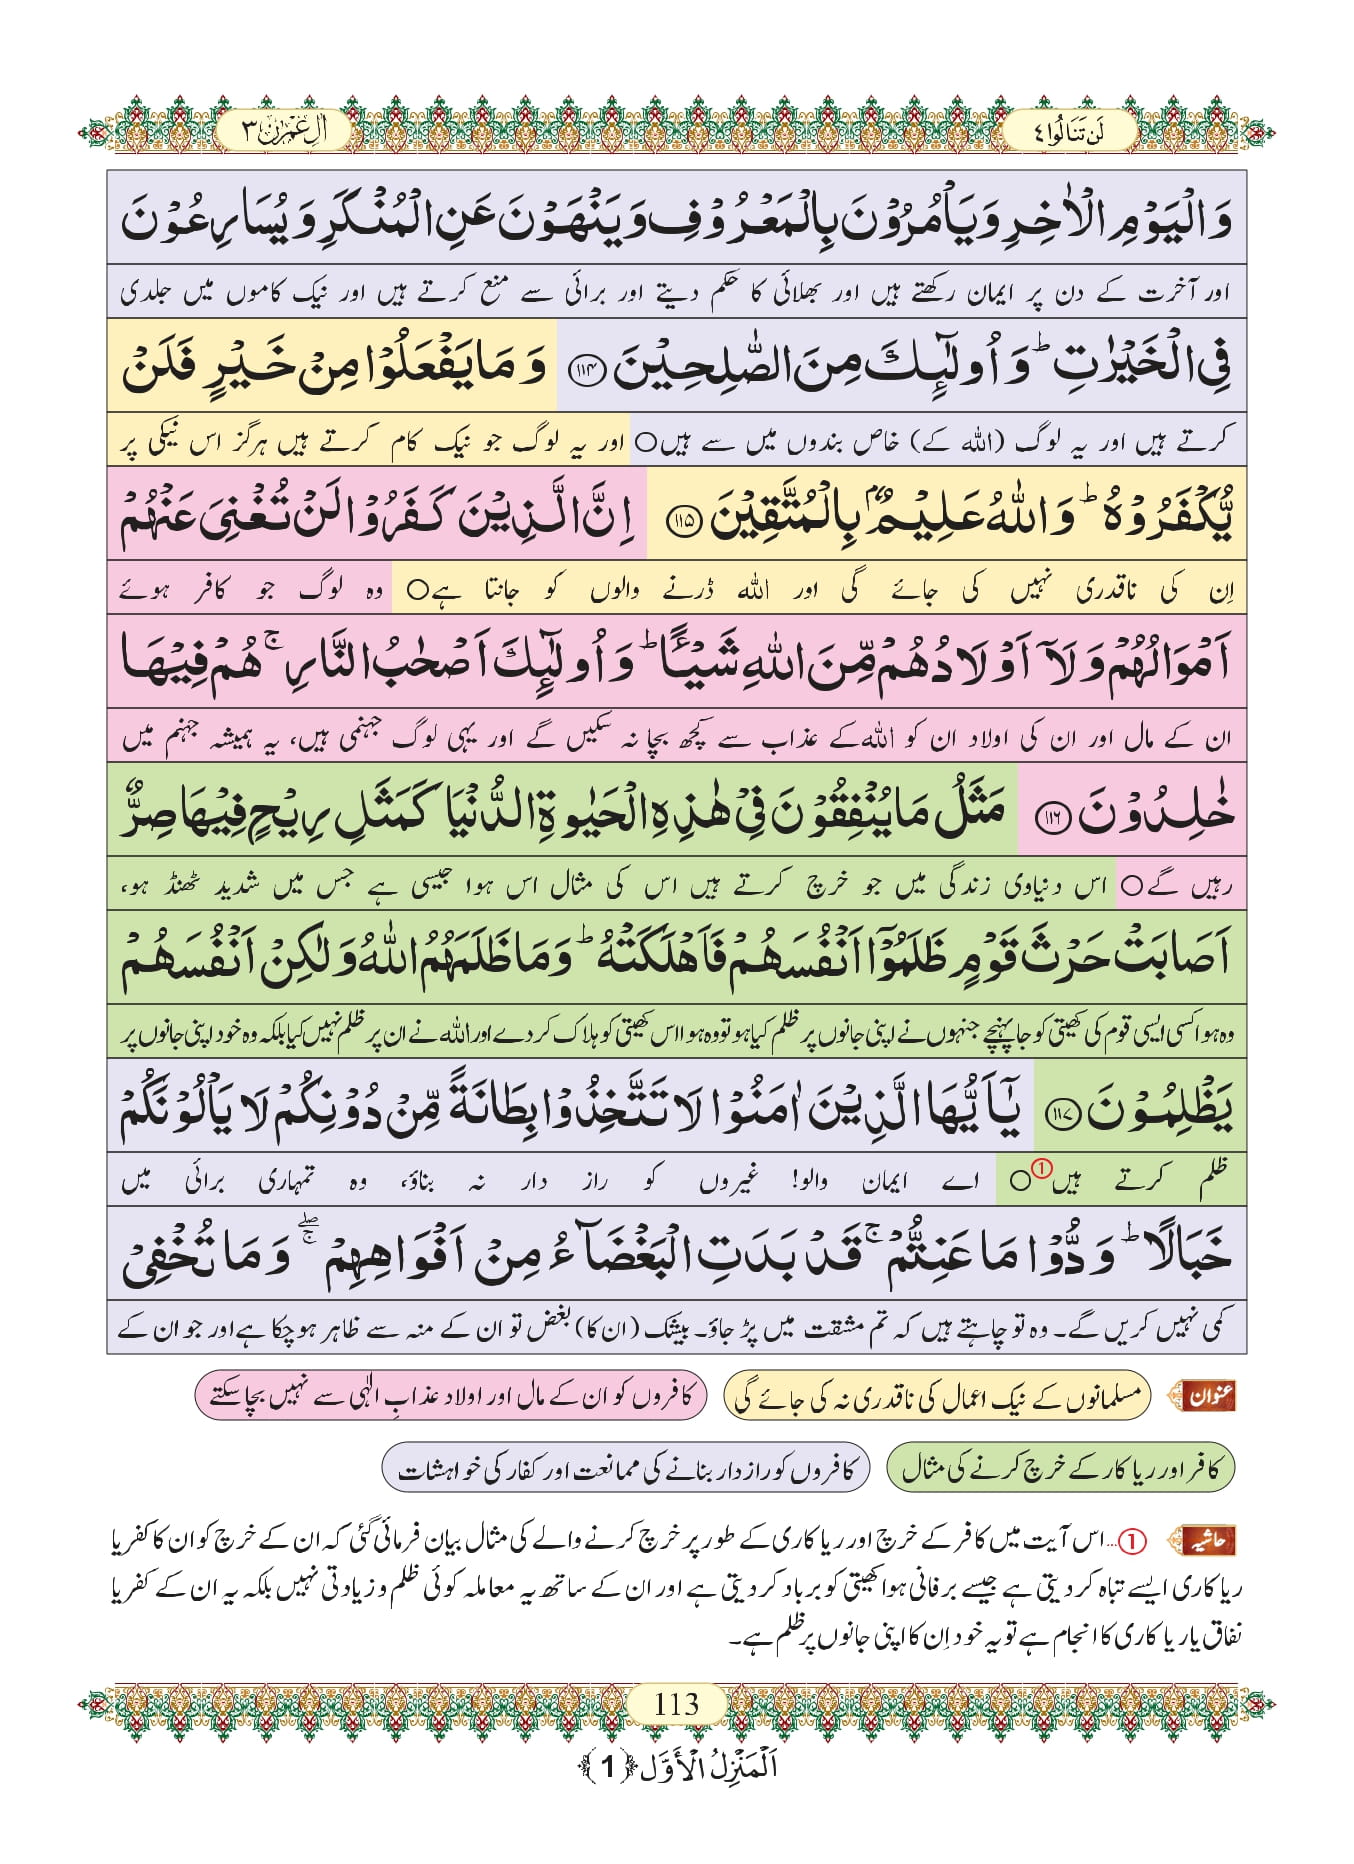 لَنْ تَنَالُوا ٤
اٰلِ عِمْرٰن ٣
وَ الْیَوْمِ الْاٰخِرِ وَ یَاْمُرُوْنَ بِالْمَعْرُوْفِ وَ یَنْهَوْنَ عَنِ الْمُنْكَرِ وَ یُسَارِعُوْنَ
اور آخرت کے دن پر ایمان رکھتے ہیں اور بھلائی کا حکم دیتے اور برائی سے منع کرتے ہیں اور نیک کاموں میں جلدی
فِی الْخَیْرٰتِؕ وَ اُولٰٓىٕكَ مِنَ الصّٰلِحِیْنَ ﴿۱۱۴﴾ وَ مَا یَفْعَلُوْا مِنْ خَیْرٍ فَلَنْ
کرتے ہیں اور یہ لوگ (اللہ کے) خاص بندوں میں سے ہیں○ اور یہ لوگ جو نیک کام کرتے ہیں ہرگز اس نیکی پر
یُّكْفَرُوْهُؕ وَ اللّٰهُ عَلِیْمٌۢ بِالْمُتَّقِیْنَ ﴿۱۱۵﴾ اِنَّ الَّذِیْنَ كَفَرُوْا لَنْ تُغْنِیَ عَنْهُمْ
اِن کی ناقدری نہیں کی جائے گی اور اللہ ڈرنے والوں کو جانتا ہے○ وہ لوگ جو کافر ہوئے
اَمْوَالُهُمْ وَ لَاۤ اَوْلَادُهُمْ مِّنَ اللّٰهِ شَیْــٴًـاؕ وَ اُولٰٓىٕكَ اَصْحٰبُ النَّارِۚ هُمْ فِیْهَا
ان کے مال اور ان کی اولاد ان کو اللہ کے عذاب سے کچھ بچا نہ سکیں گے اور یہی لوگ جہنمی ہیں، یہ ہمیشہ جہنم میں
خٰلِدُوْنَ ﴿۱۱۶﴾ مَثَلُ مَا یُنْفِقُوْنَ فِیْ هٰذِهِ الْحَیٰوةِ الدُّنْیَا كَمَثَلِ رِیْحٍ فِیْهَا صِرٌّ
رہیں گے○ اس دنیاوی زندگی میں جو خرچ کرتے ہیں اس کی مثال اس ہوا جیسی ہے جس میں شدید ٹھنڈ ہو،
اَصَابَتْ حَرْثَ قَوْمٍ ظَلَمُوْۤا اَنْفُسَهُمْ فَاَهْلَكَتْهُؕ وَ مَا ظَلَمَهُمُ اللّٰهُ وَ لٰكِنْ اَنْفُسَهُمْ
وہ ہوا کسی ایسی قوم کی کھیتی کو جا پہنچے جنہوں نے اپنی جانوں پر ظلم کیا ہو تو وہ ہوا اس کھیتی کو ہلاک کردے اور اللہ نے ان پر ظلم نہیں کیا بلکہ وہ خود اپنی جانوں پر
یَظْلِمُوْنَ ﴿۱۱۷﴾ یٰۤاَیُّهَا الَّذِیْنَ اٰمَنُوْا لَا تَتَّخِذُوْا بِطَانَةً مِّنْ دُوْنِكُمْ لَا یَاْلُوْنَكُمْ
ظلم کرتے ہیں①○ اے ایمان والو! غیروں کو راز دار نہ بناؤ، وہ تمہاری برائی میں
خَبَالًاؕ وَدُّوْا مَا عَنِتُّمْۚ قَدْ بَدَتِ الْبَغْضَآءُ مِنْ اَفْوَاهِهِمْ ۚۖ وَ مَا تُخْفِیْ
کمی نہیں کریں گے۔ وہ تو چاہتے ہیں کہ تم مشقت میں پڑ جاؤ۔ بیشک (ان کا) بغض تو ان کے منہ سے ظاہر ہوچکا ہے اور جو ان کے
عنوان مسلمانوں کے نیک اعمال کی ناقدری نہ کی جائے گی کافروں کو ان کے مال اور اولاد عذابِ الٰہی سے نہیں بچا سکتے
کافر اور ریا کار کے خرچ کرنے کی مثال کافروں کو راز دار بنانے کی ممانعت اور کفار کی خواہشات
حاشیہ ①...اس آیت میں کافر کے خرچ اور ریاکاری کے طور پر خرچ کرنے والے کی مثال بیان فرمائی گئی کہ ان کے خرچ کو ان کا کفر یا
ریاکاری ایسے تباہ کردیتی ہے جیسے برفانی ہوا کھیتی کو برباد کردیتی ہے اور ان کے ساتھ یہ معاملہ کوئی ظلم و زیادتی نہیں بلکہ یہ ان کے کفر یا
نفاق یا ریاکاری کا انجام ہے تو یہ خود اِن کا اپنی جانوں پر ظلم ہے۔
113
اَلْمَنْزِلُ الْأَوَّل ﴿1﴾